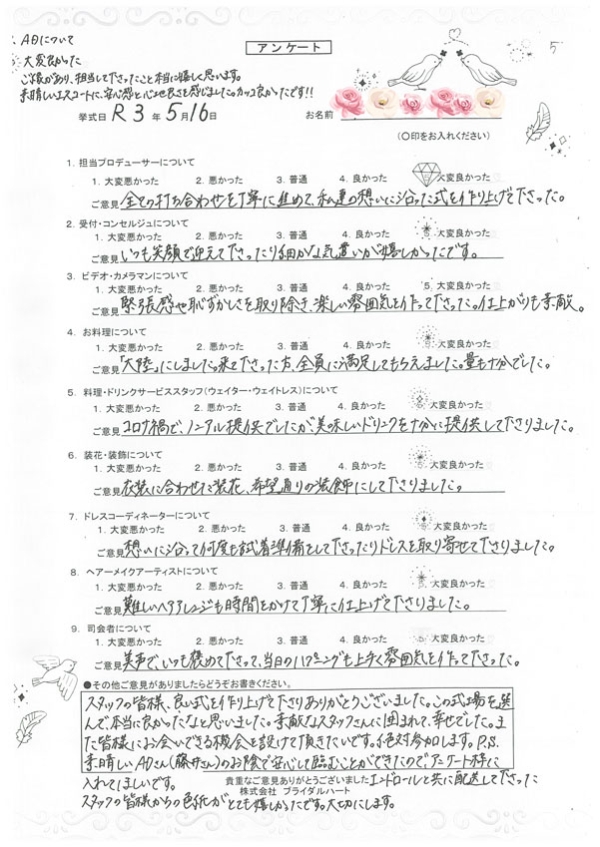 ADについて
大変良かった
ご縁があり、担当して下さったこと本当に嬉しく思います。
素晴しいエスコートに、安心感と心地良さを感じました。カッコ良かったです!!
アンケート
5
挙式日 R3年5月16日 お名前
(〇印をお入れください)
1. 担当プロデューサーについて
1. 大変悪かった 2. 悪かった 3. 普通 4. 良かった 大変良かった
ご意見 全ての打ち合わせを丁寧に進めて、私達の想いに沿った式を作り上げて下さった。
2. 受付・コンセルジュについて
1. 大変悪かった 2. 悪かった 3. 普通 4. 良かった 大変良かった
ご意見 いつも笑顔で迎えて下さったり細かい気遣いが嬉しかったです。
3. ビデオ・カメラマンについて
1. 大変悪かった 2. 悪かった 3. 普通 4. 良かった 5. 大変良かった
ご意見 緊張感や恥ずかしさを取り除き、楽しい雰囲気を作って下さった。仕上がりも素敵。
4. お料理について
1. 大変悪かった 2. 悪かった 3. 普通 4. 良かった 大変良かった
ご意見 「大陸」にしました。来て下さった方、全員に満足してもらえました。量も十分でした。
5. 料理・ドリンクサービススタッフ(ウェイター・ウェイトレス)について
1. 大変悪かった 2. 悪かった 3. 普通 4. 良かった 大変良かった
ご意見 コロナ禍で、ノンアル提供でしたが、美味しいドリンクを十分に提供して下さりました。
6. 装花・装飾について
1. 大変悪かった 2. 悪かった 3. 普通 4. 良かった 大変良かった
ご意見 衣装に合わせた装花、希望通りの装飾にして下さりました。
7. ドレスコーディネーターについて
1. 大変悪かった 2. 悪かった 3. 普通 4. 良かった 大変良かった
ご意見 想いに沿って何度も試着準備をして下さったりドレスを取り寄せて下さりました。
8. ヘアーメイクアーティストについて
1. 大変悪かった 2. 悪かった 3. 普通 4. 良かった 大変良かった
ご意見 難しいヘアアレンジも時間をかけて丁寧に仕上げて下さりました。
9. 司会者について
1. 大変悪かった 2. 悪かった 3. 普通 4. 良かった 大変良かった
ご意見 美声で、いつも褒めて下さって、当日のハプニングも上手く雰囲気を作って下さった。
●その他ご意見がありましたらどうぞお書きください。
スタッフの皆様、良い式を作り上げて下さりありがとうございました。この式場を選
んで、本当に良かったなと思いました。素敵なスタッフさんに囲まれて、幸せでした。ま
た皆様にお会いできる機会を設けて頂きたいです。絶対参加します。P.S.
素晴しいADさん(藤井さん)のお陰で安心して臨むことができたので、アンケート枠に
入れてほしいです。
貴重なご意見ありがとうございました
エンドロールと共に配送して下さった
株式会社 ブライダルハート
スタッフの皆様からの色紙がとても嬉しかったです。大切にします。